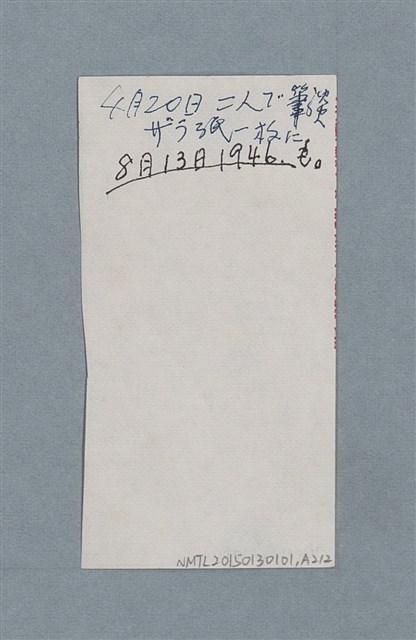 4月20日 二人で筆談
ザラ紙一枚に
8月13日1946.も。
NMTL20150130101,A212